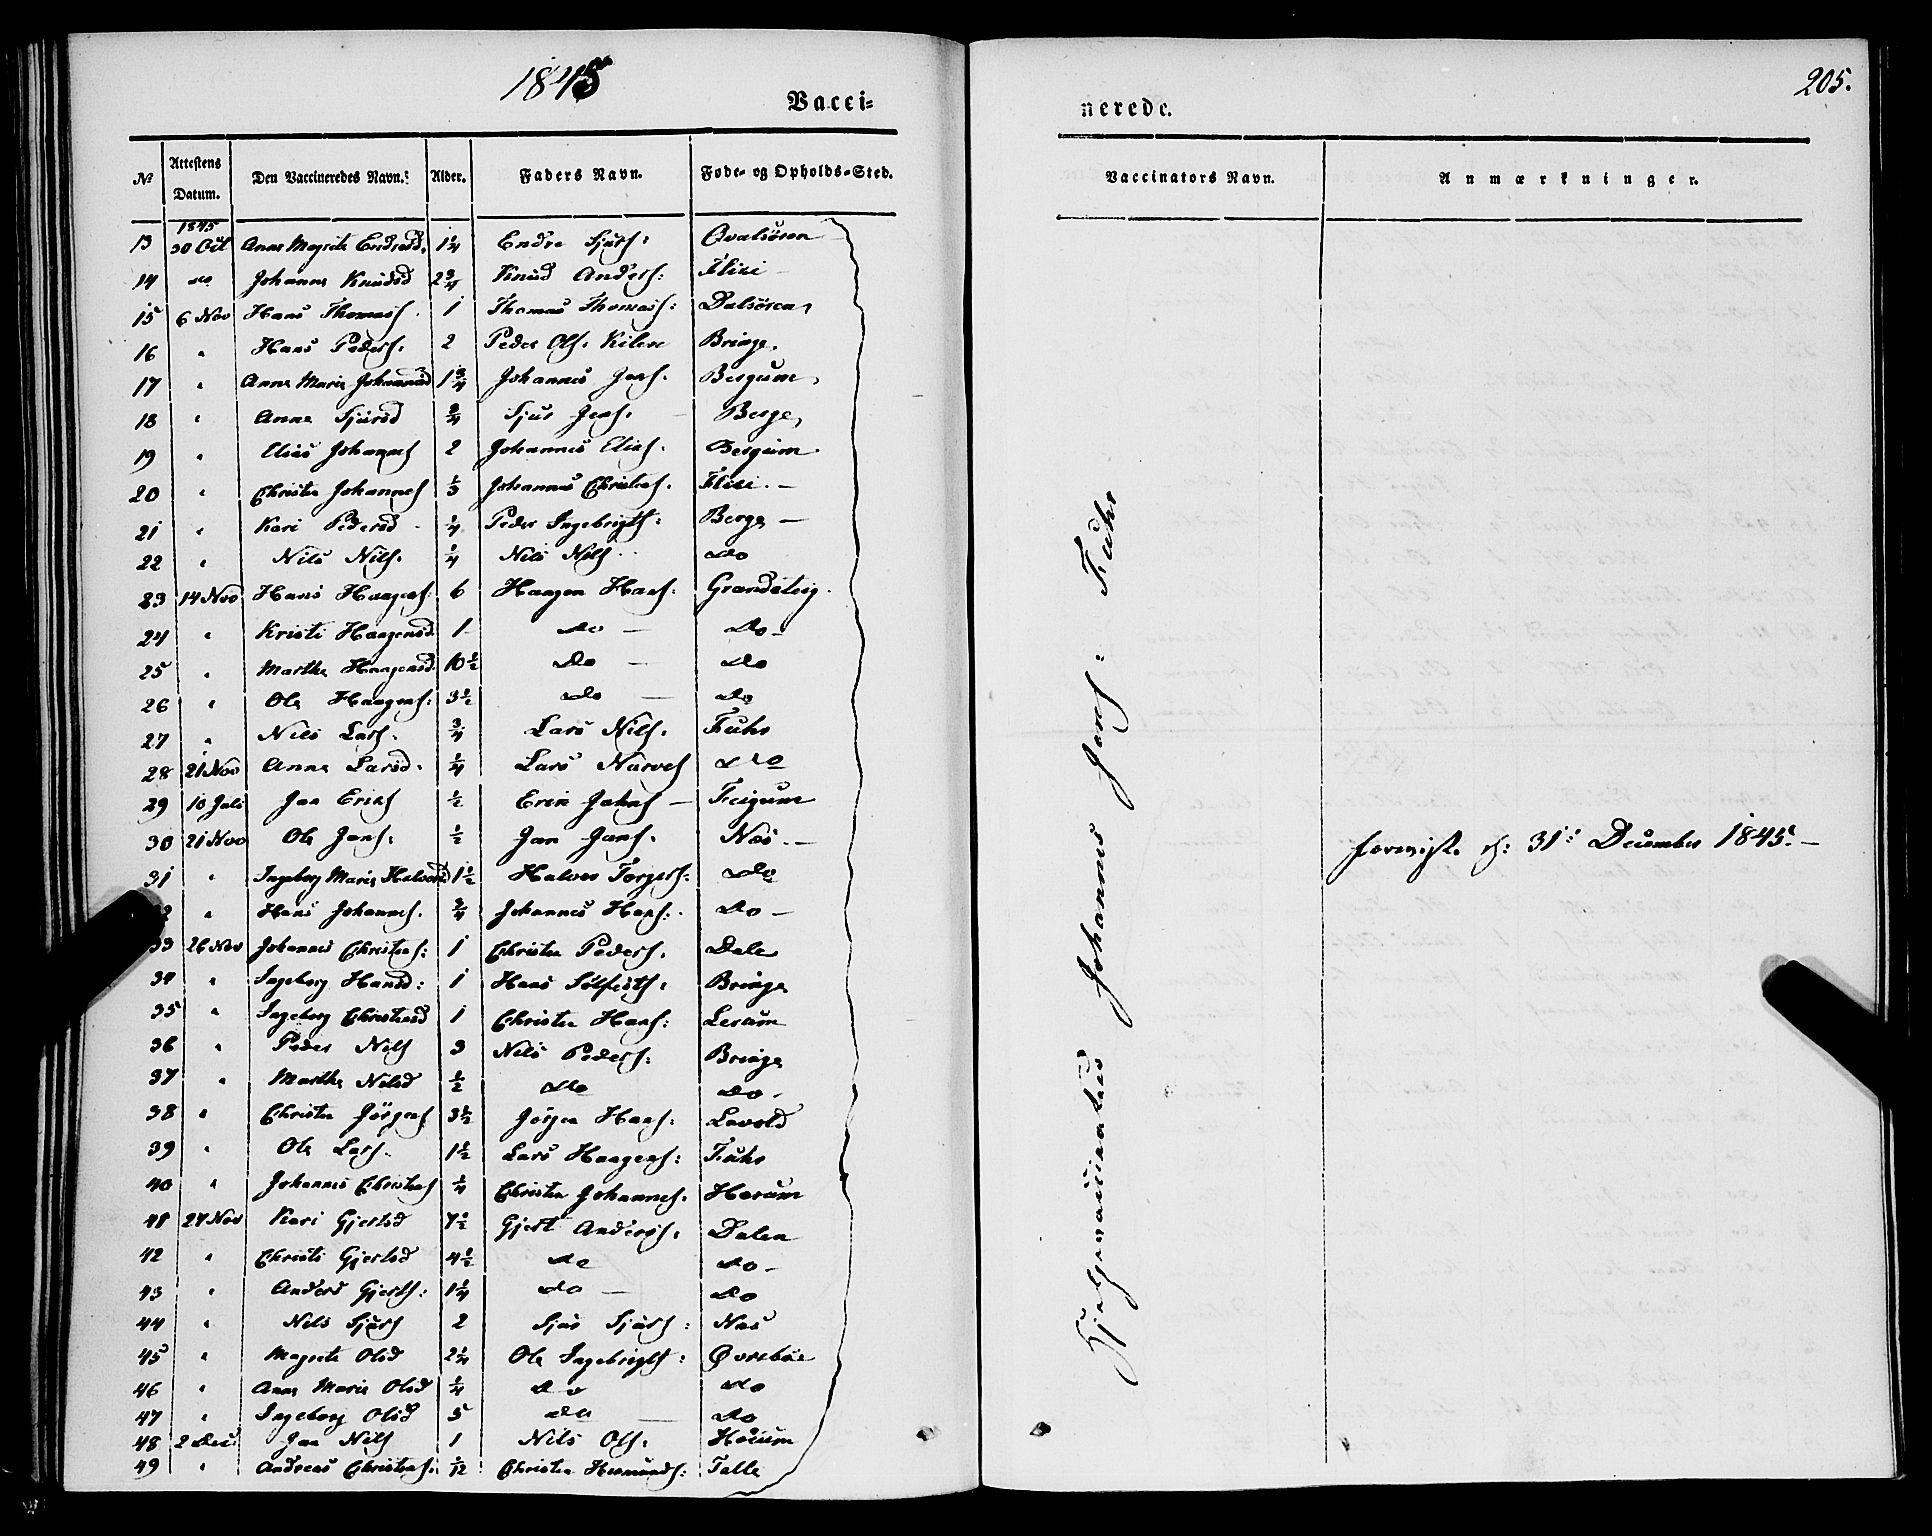 1845
Vacci=
nerede.
205.
No Attestens Datum. Den Vaccineredes Navn. Alder. Faders Navn. Føde- og Opholds-Sted.
Vaccinators Navn. Anmærkninger.
1845
13 30 Oct Anne Magrete Endresd. 1 1/4 Endre Sjurs:
14 do Johanne Knudsd 2 3/4 Knud Anders:
15 6 Nov Hans Thomass. 1 Thomas Thomass: Dalsøren
16 " Hans Peders: 2 Peder Ols: Bringe.
17 " Anne Marie Johannesd 1 3/4 Johannes Jens. Bergum
18 " Anne Sjursd 3/4 Sjur Jens. Berge
19 " Elias Johannes 2 Johannes Elias. Bergum
20 " Christen Johannes 1/3 Johannes Christens.
21 " Kari Pedersd 1/4 Peder Ingebrigts: Berge —
22 " Nils Nils. 1/4 Nils Nils do
23 14 Nov Hans Haagens: 6 Haagen Hans.
24 " Kristi Haagensd 1 do — do —
25 " Marthe Haagensd. 10 1/2 do — do
26 " Ole Haagens: 3 1/2 do — do
27 " Nils Lars. 3/4 Lars Nils. Fuhr
28 21 Nov Anne Larsd. 1/4 Lars do
29 10 Juli Jan Eriks 1/2 Erik Johns — Feigum
30 21 Nov Ole Jans: 1/2 Jan Jans. Næs. —
31 " Ingeborg Marie Halvorsd 1 1/2 Halvor Torgers: do
" Hans Johannes. 3/4 Johannes Hans. do —
33 26 Nov Johannes Christens: 1 Christen Peders. Dale
34 " Ingeborg Hansd: 1 Hans Bringe
35 " Ingeborg Christensd 1 Christen Hans: Lerum
36 " Peder Nils 3 Nils Peders: Bringe
37 " Marthe Nilsd 1/2 do do.
38 " Christen Jørgens 3 1/2 Jørgen Hans:
39 " Ole Lars. 1 1/2 Lars Haagens: Fuhr
40 " Johannes Christens 1/4 Christen Johannes.
41 27 Nov Kari Gjertsd 7 1/2 Gjert Anders. Dalen
42 " Christi Gjertsd 4 1/2 do do —
43 " Anders Gjerts: 1 1/4 do — do
44 " Nils Sjurs 2 Sjur Sjurs: Næs
45 " Magrete Olsd 2 1/4 Ole Ingebrigts: Øvrebøe
46 " Anne Marie Olsd 1/4 do do
47 " Ingeborg Olsd 5 do — do
48 2 Dec Jan Nils 1 Nils Ols.
49 " Andreas Christens. 1/12 Christen Hermunds: Talle
Hjelpevaccinateur Johannes Jens: Fuhr
31te December 1845. —